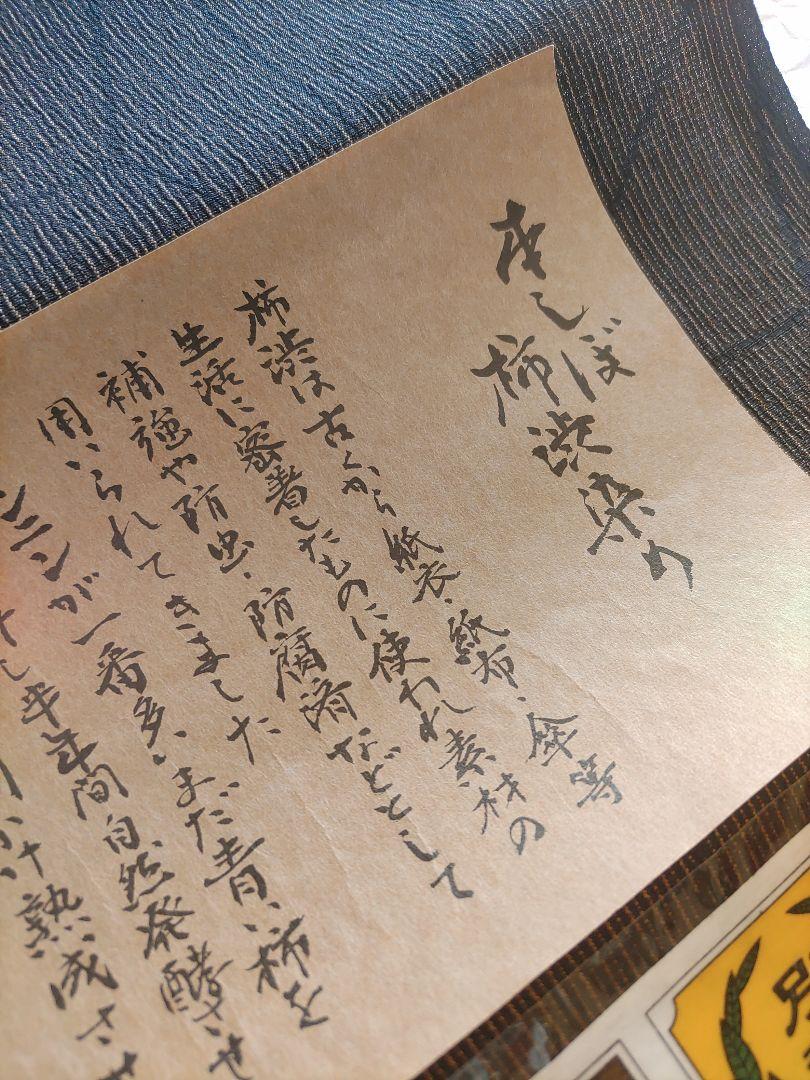 本しぼ
柿渋染り
柿渋は古くから紙衣、紙布、傘等
生活に密着したものに使われ素材の
補強や防虫、防腐済などとして
用いられてきました
ンニンが一番多いまだ青い柿を
し半年間自然発酵させ
かけ熟成させ